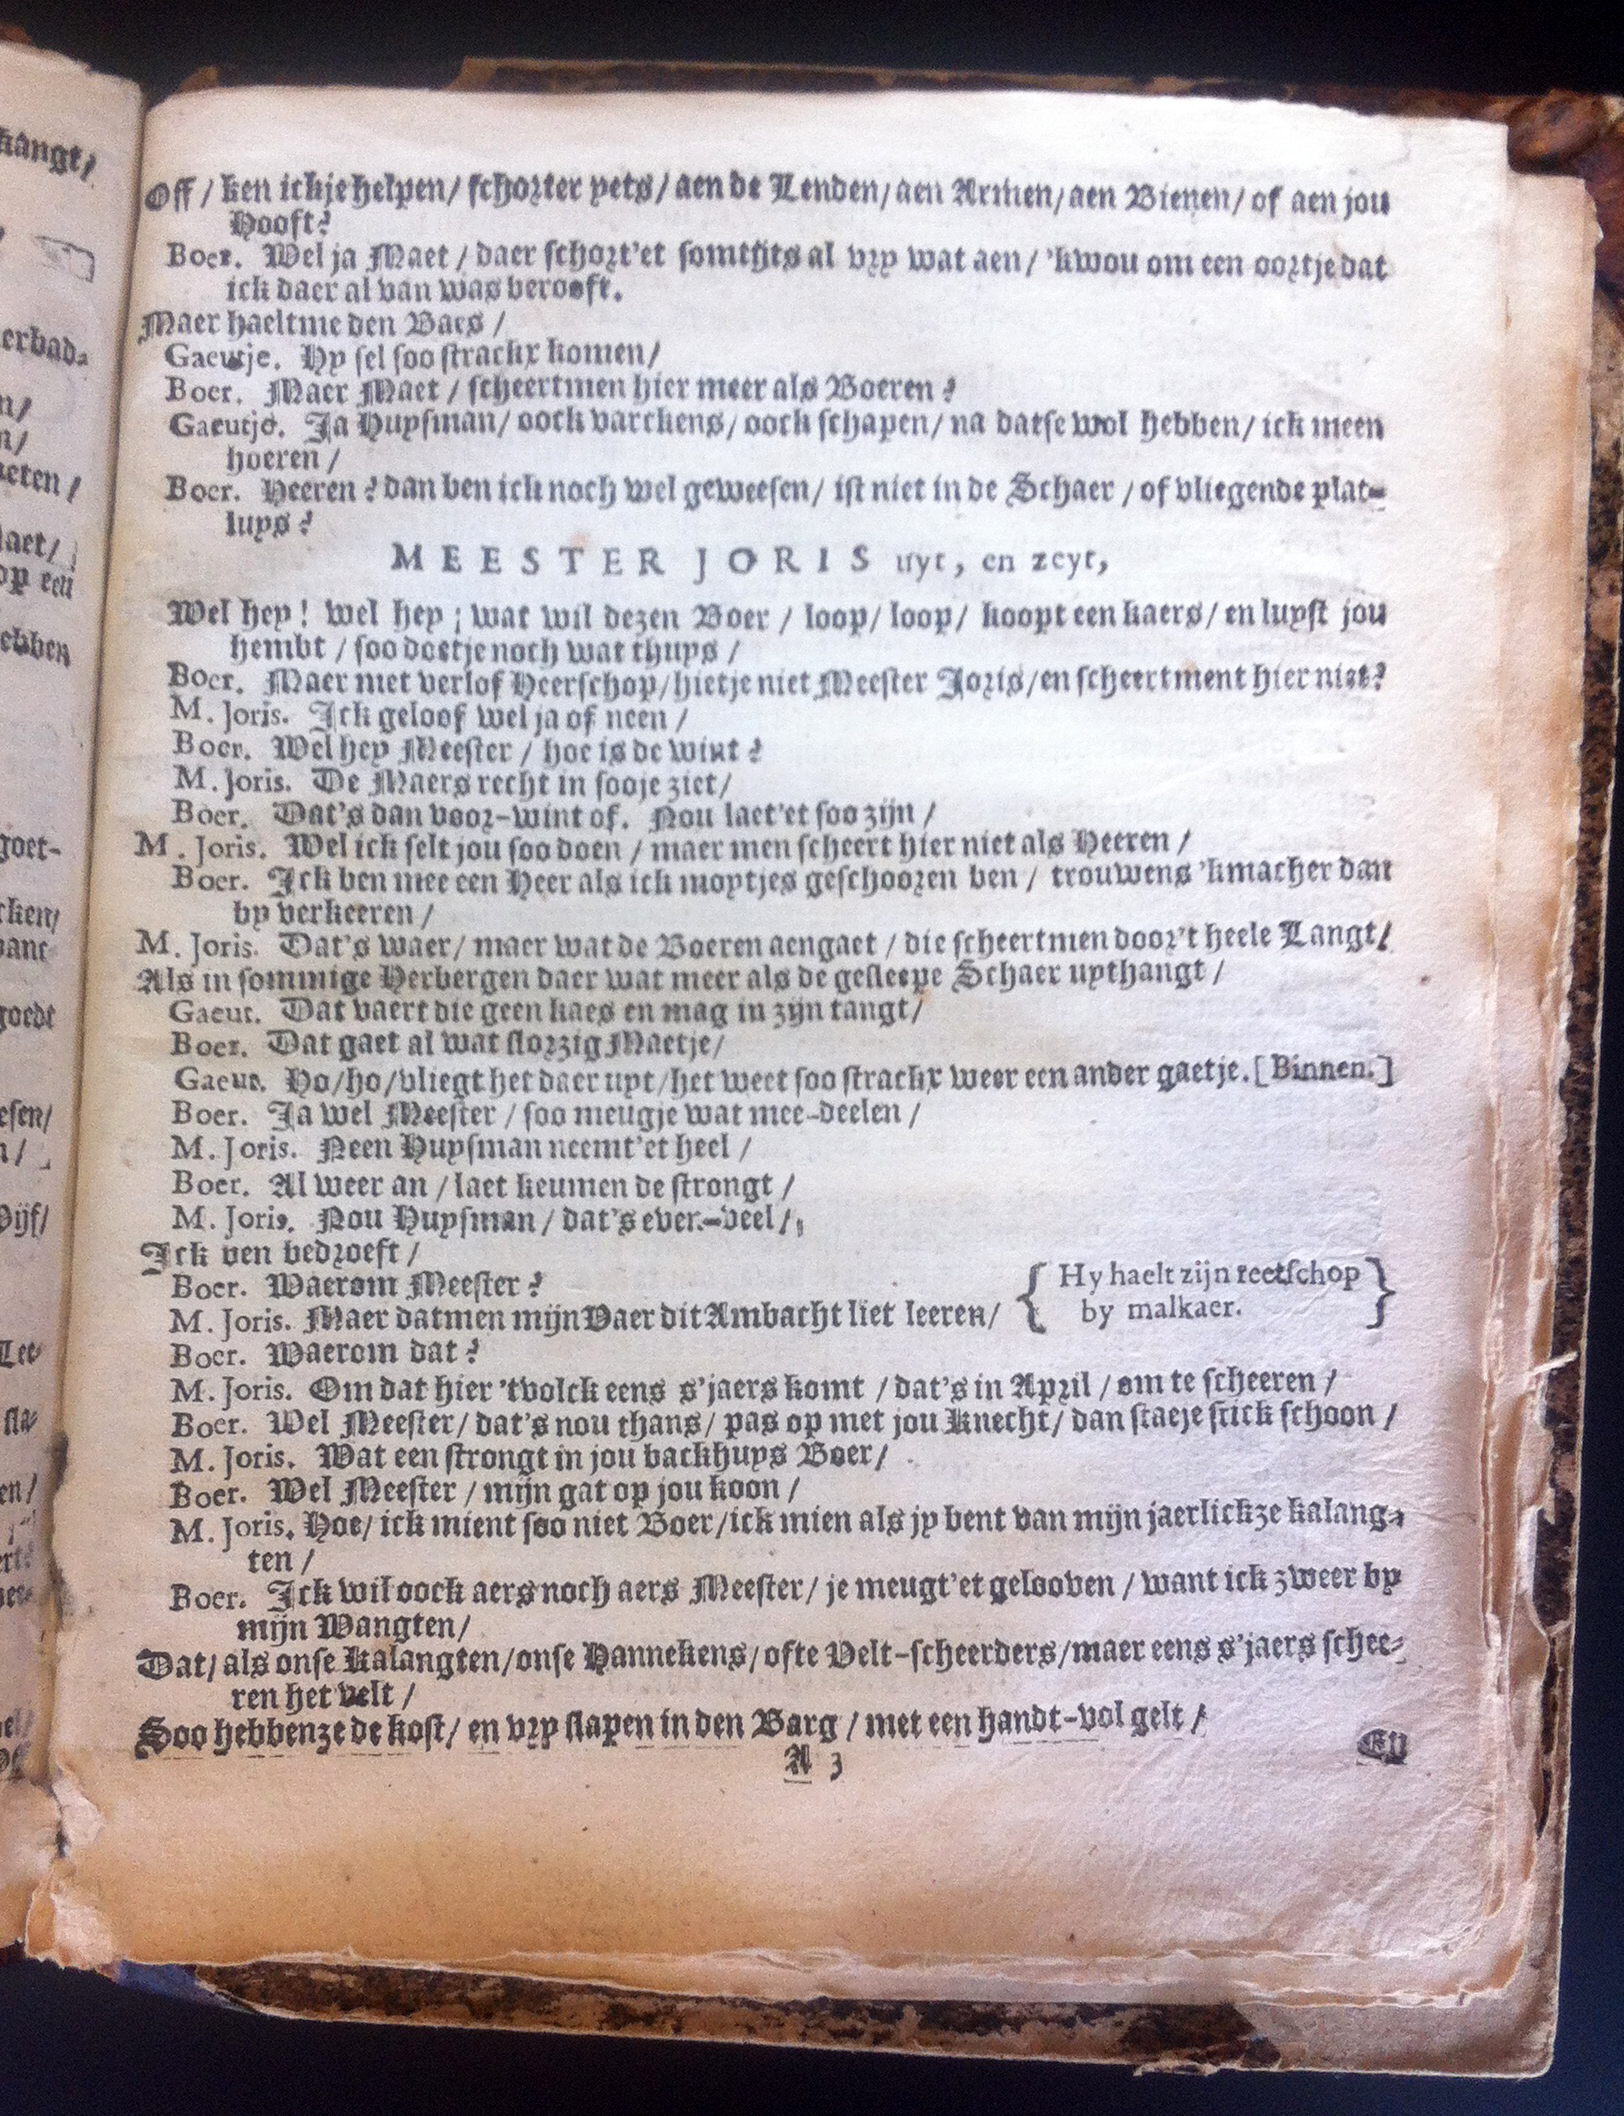 Off / ken ick je helpen / schorter yets / aen de Lenden / aen Armen / aen Bienen / of aen jou
Hooft?
Boer. Wel ja Maet / daer schort'et somthts al vry wat aen / 'kwou om een oortje dat
ick daer al van was berooft.
Maer haeltme den Baes /
Gaeutje. Hy sel soo strackx komen /
Boer. Maer Maet / scheertmen hier meer als Boeren?
Gaeutje. Ja Huysman / oock varckens / oock schapen / na datse wol hebben / ick meen
hoeren /
Boer. Heeren? dan ben ick noch wel geweesen / ist niet in de Schaer / of vliegende plat-
luys?
MEESTER JORIS uyt, en zeyt,
Wel hey! wel hey; wat wil dezen Boer / loop / loop / koopt een kaers / en luyst jou
hembt / soo doetje noch wat thuys /
Boer. Maer met verlof Heerschop / hietje niet Meester Joris / en scheertment hier niet?
M. Joris. Ick geloof wel ja of neen /
Boer. Wel hey Meester / hoe is de wint?
M. Joris. De Maers recht in sooje ziet /
Boer. Dat's dan voor-wint of. Nou laet'et soo zijn /
M. Joris. Wel ick selt jou soo doen / maer men scheert hier niet als Heeren /
Boer. Ick ben mee een Heer als ick moytjes geschooren ben / trouwens 'kmacher dan
by verkeeren /
M. Joris. Dat's waer / maer wat de Boeren aengaet / die scheertmen door't heele Langt /
Als in sommige Herbergen daer wat meer als de gesleepe Schaer uythangt /
Gaeut. Dat vaert die geen kaes en mag in zijn tangt /
Boer. Dat gaet al wat slorzig Maetje /
Gaeut. Ho / ho / vliegt het daer uyt / het weet soo strackx weer een ander gaetje. [Binnen.]
Boer. Ja wel Meester / soo meugje wat mee-deelen /
M. Joris. Neen Huysman neemt'et heel /
Boer. Al weer an / laet keumen de strongt /
M. Joris. Nou Huysman / dat's ever-veel /,
Ick ben bedroeft /
Boer. Waerom Meester?
{ Hy haelt zijn reetschop
by malkaer. }
M. Joris. Maer datmen mijn Vaer dit Ambacht liet leeren /
Boer. Waerom dat?
M. Joris. Om dat hier 'tvolck eens s'jaers komt / dat's in April / om te scheeren /
Boer. Wel Meester / dat's nou thans / pas op met jou knecht / dan staeje stick schoon /
M. Joris. Wat een strongt in jou backhuys Boer /
Boer. Wel Meester / mijn gat op jou koon /
M. Joris. Hoe / ick mient soo niet Boer / ick mien als jy bent van mijn jaerlickze kalang-
ten /
Boer. Ick wil oock aers noch aers Meester / je meugt'et gelooven / want ick zweer by
mijn Wangten /
Dat / als onse kalangten / onse Hannekens / ofte Velt-scheerders / maer eens s'jaers schee-
ren het velt /
Soo hebbenze de kost / en vry slapen in den Barg / met een handt-vol gelt /
A 3
En
kangt /
erbad-
n /
n /
eten /
laet /
op een
ebben
goet-
cken /
vant
goedt
esen /
n /
Vijf /
Lee-
sla-
en /
ert?
hee-
el /